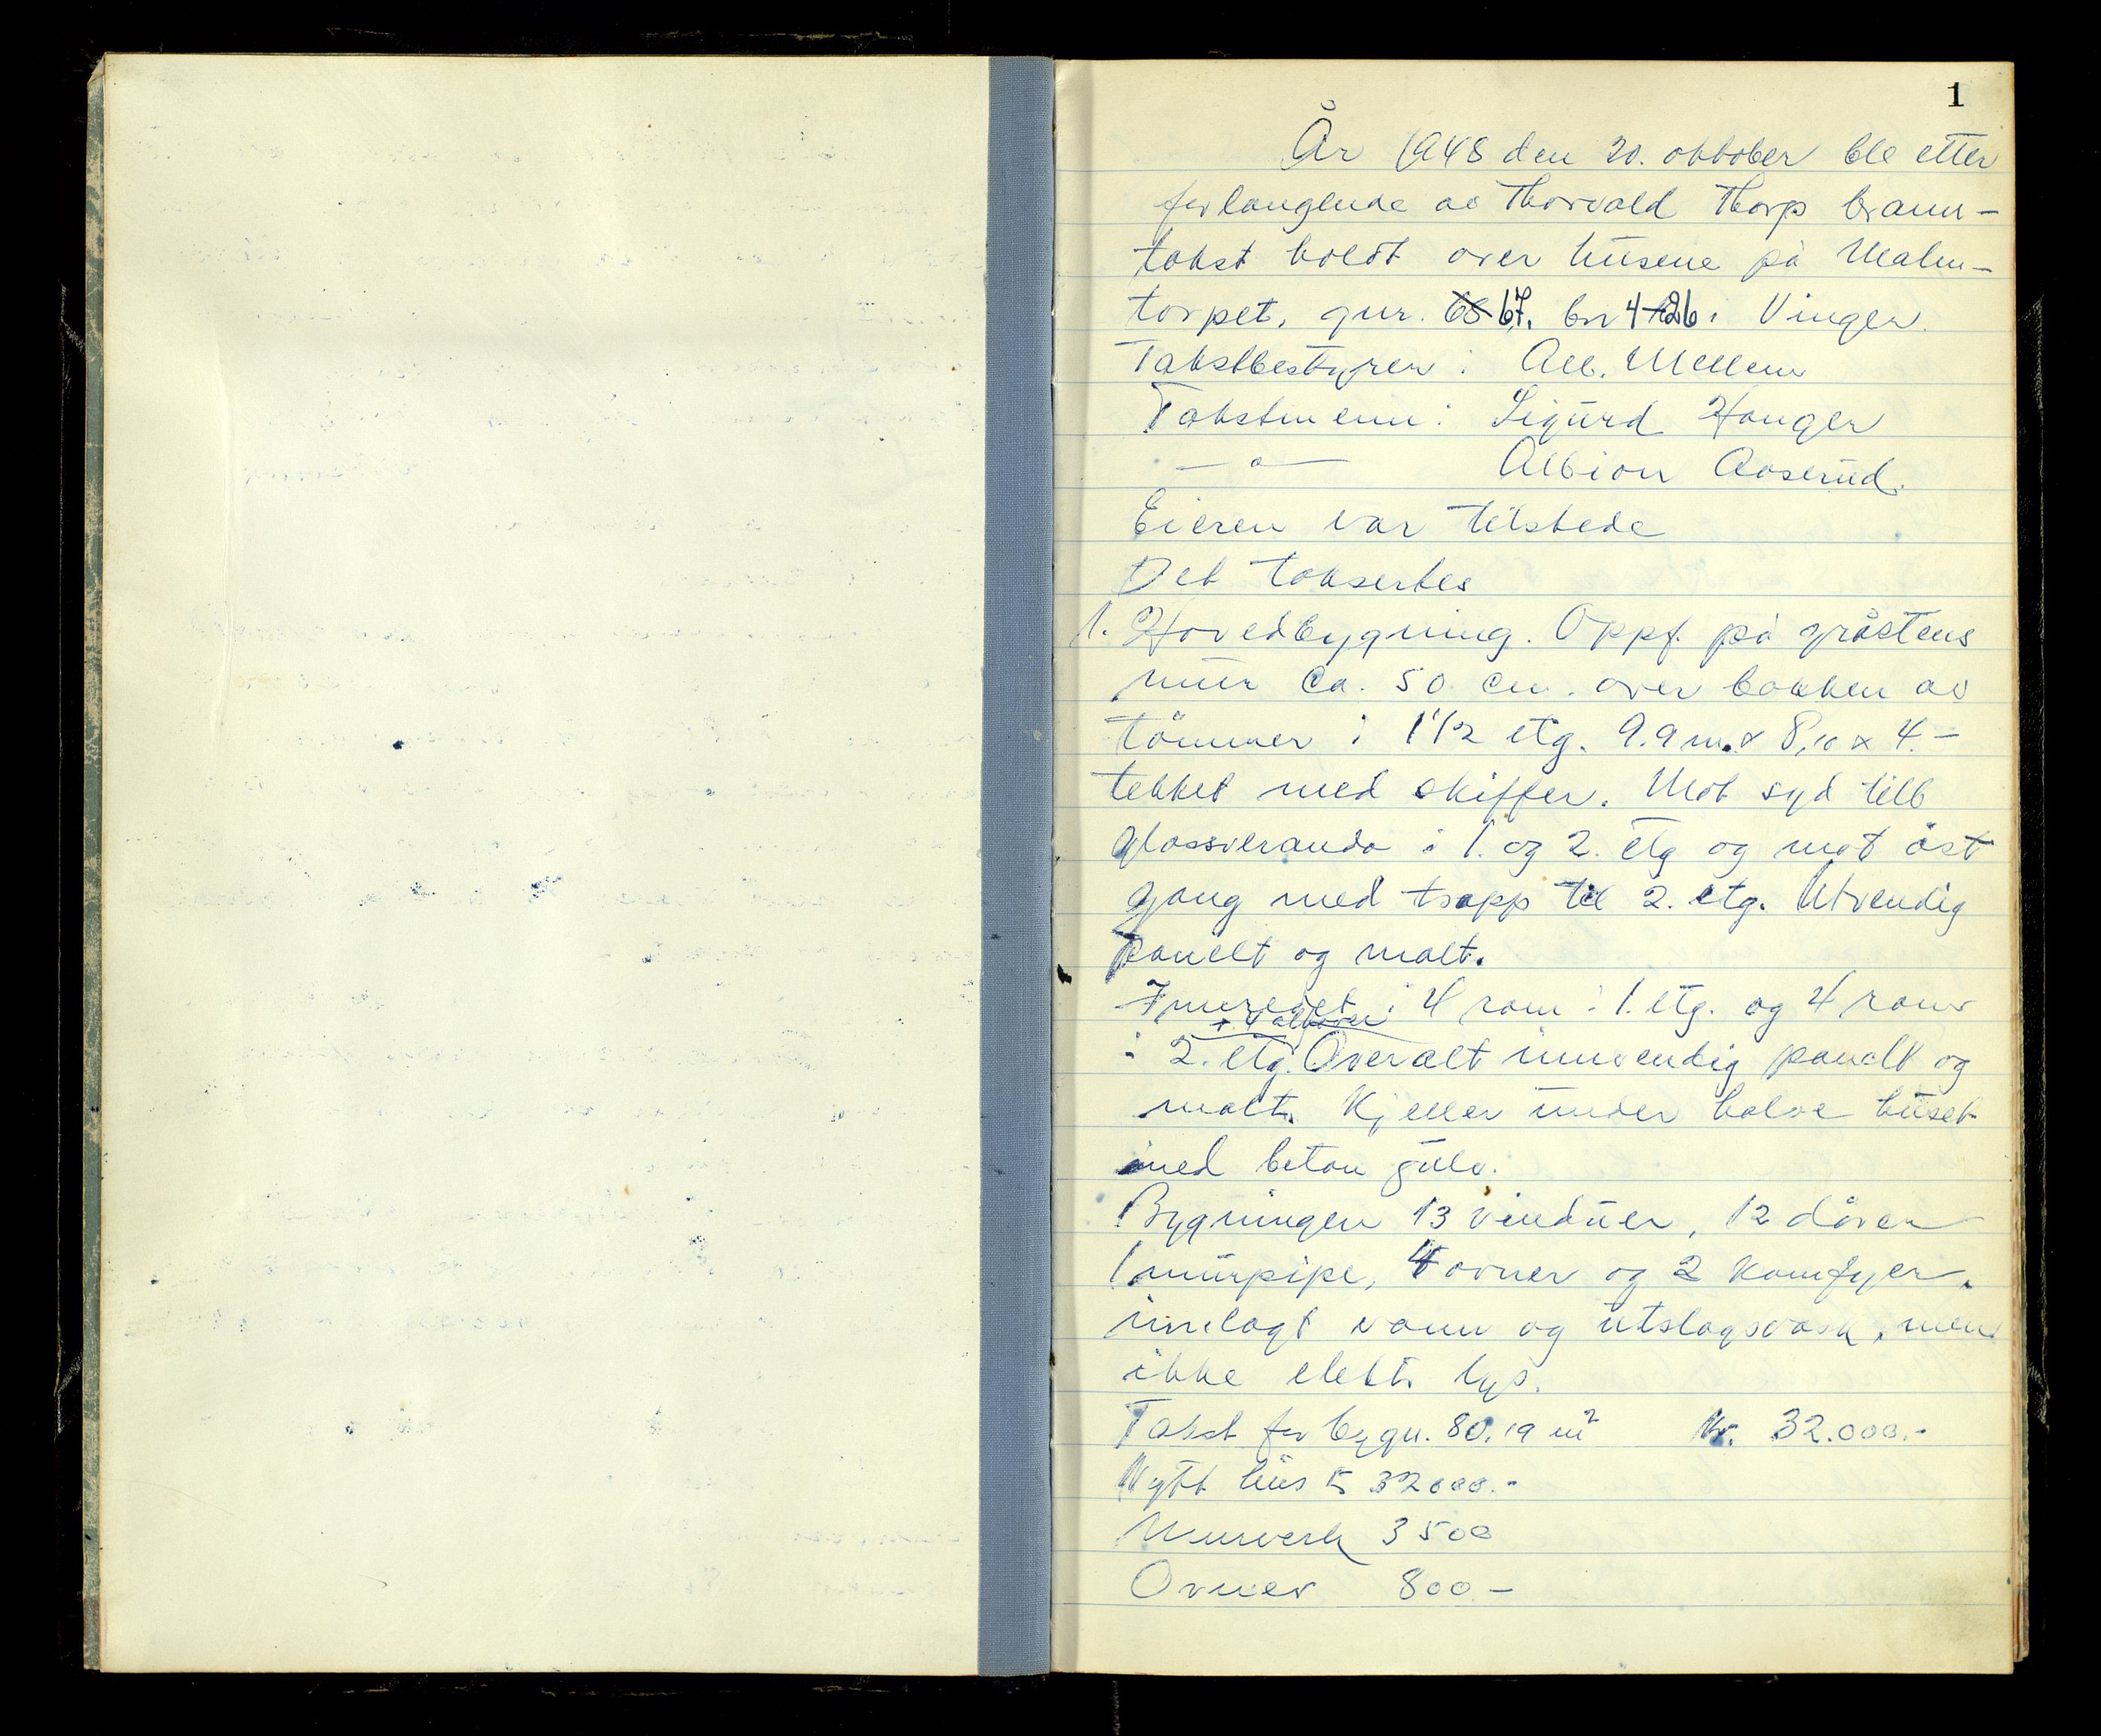 1
År 1948 den 20. oktober ble etter
forlangende av Thorvald Thorp brann-
takst holdt over husene på Malm-
torpet, gnr. 67, bnr 4 i Vinger.
Takstbestyrer: Alb. Mellem
Takstmenn: Sigurd Hauger
—"— Albion Aaserud.
Eieren var tilstede
Det taksertes
1. Hovedbygning. Oppf. på gråstens
mur ca. 50 cm. over bakken av
tömmer i 1 1/2 etg. 9.9 m. x 8,10 x 4.-
tekket med skiffer. Mot syd tilb
glassveranda i 1. og 2. etg og mot öst
gang med trapp til 2. etg. Utvendig
panelt og malt.
Innredet i 4 rom i 1. etg. og 4 rom
+ 4 alkover
i 2. etg. Overalt innvendig panelt og
malt. Kjeller under halve huset
med beton gulv.
Bygningen 13 vinduer, 12 dörer
1 murpipe, 4 ovner og 2 komfyer.
innlagt vann og utslagsvask, men
ikke elektr. lys.
Takst for bygn. 80.19 m² Kr. 32.000.-
Nytt hus kr 32000.-
Murverk 3500
Ovner 800 -